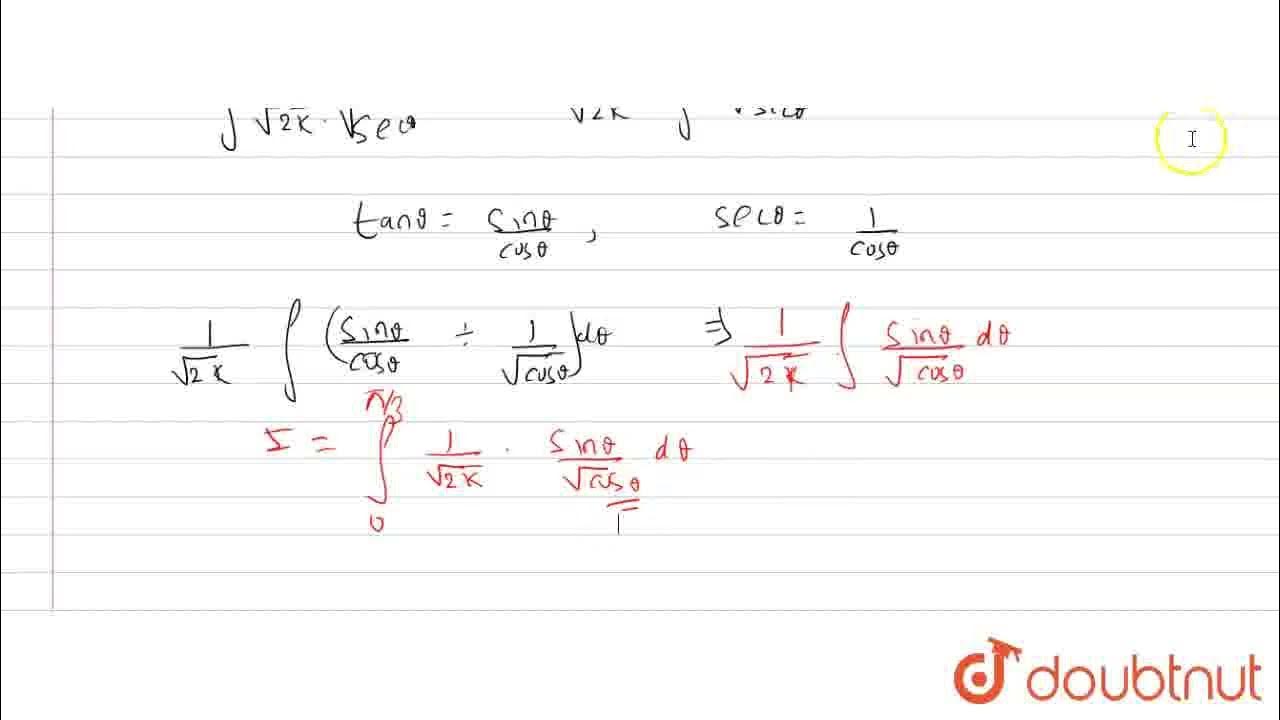 ∫ √2k · √secθ √2k ∫ √secθ
tanθ = sinθ/cosθ , secθ = 1/cosθ
1/√2k ∫ (sinθ/cosθ ÷ 1/√cosθ)dθ ⇒ 1/√2k ∫ sinθ/√cosθ dθ
I = ∫₀^π/3 1/√2k · sinθ/√cosθ dθ
doubtnut